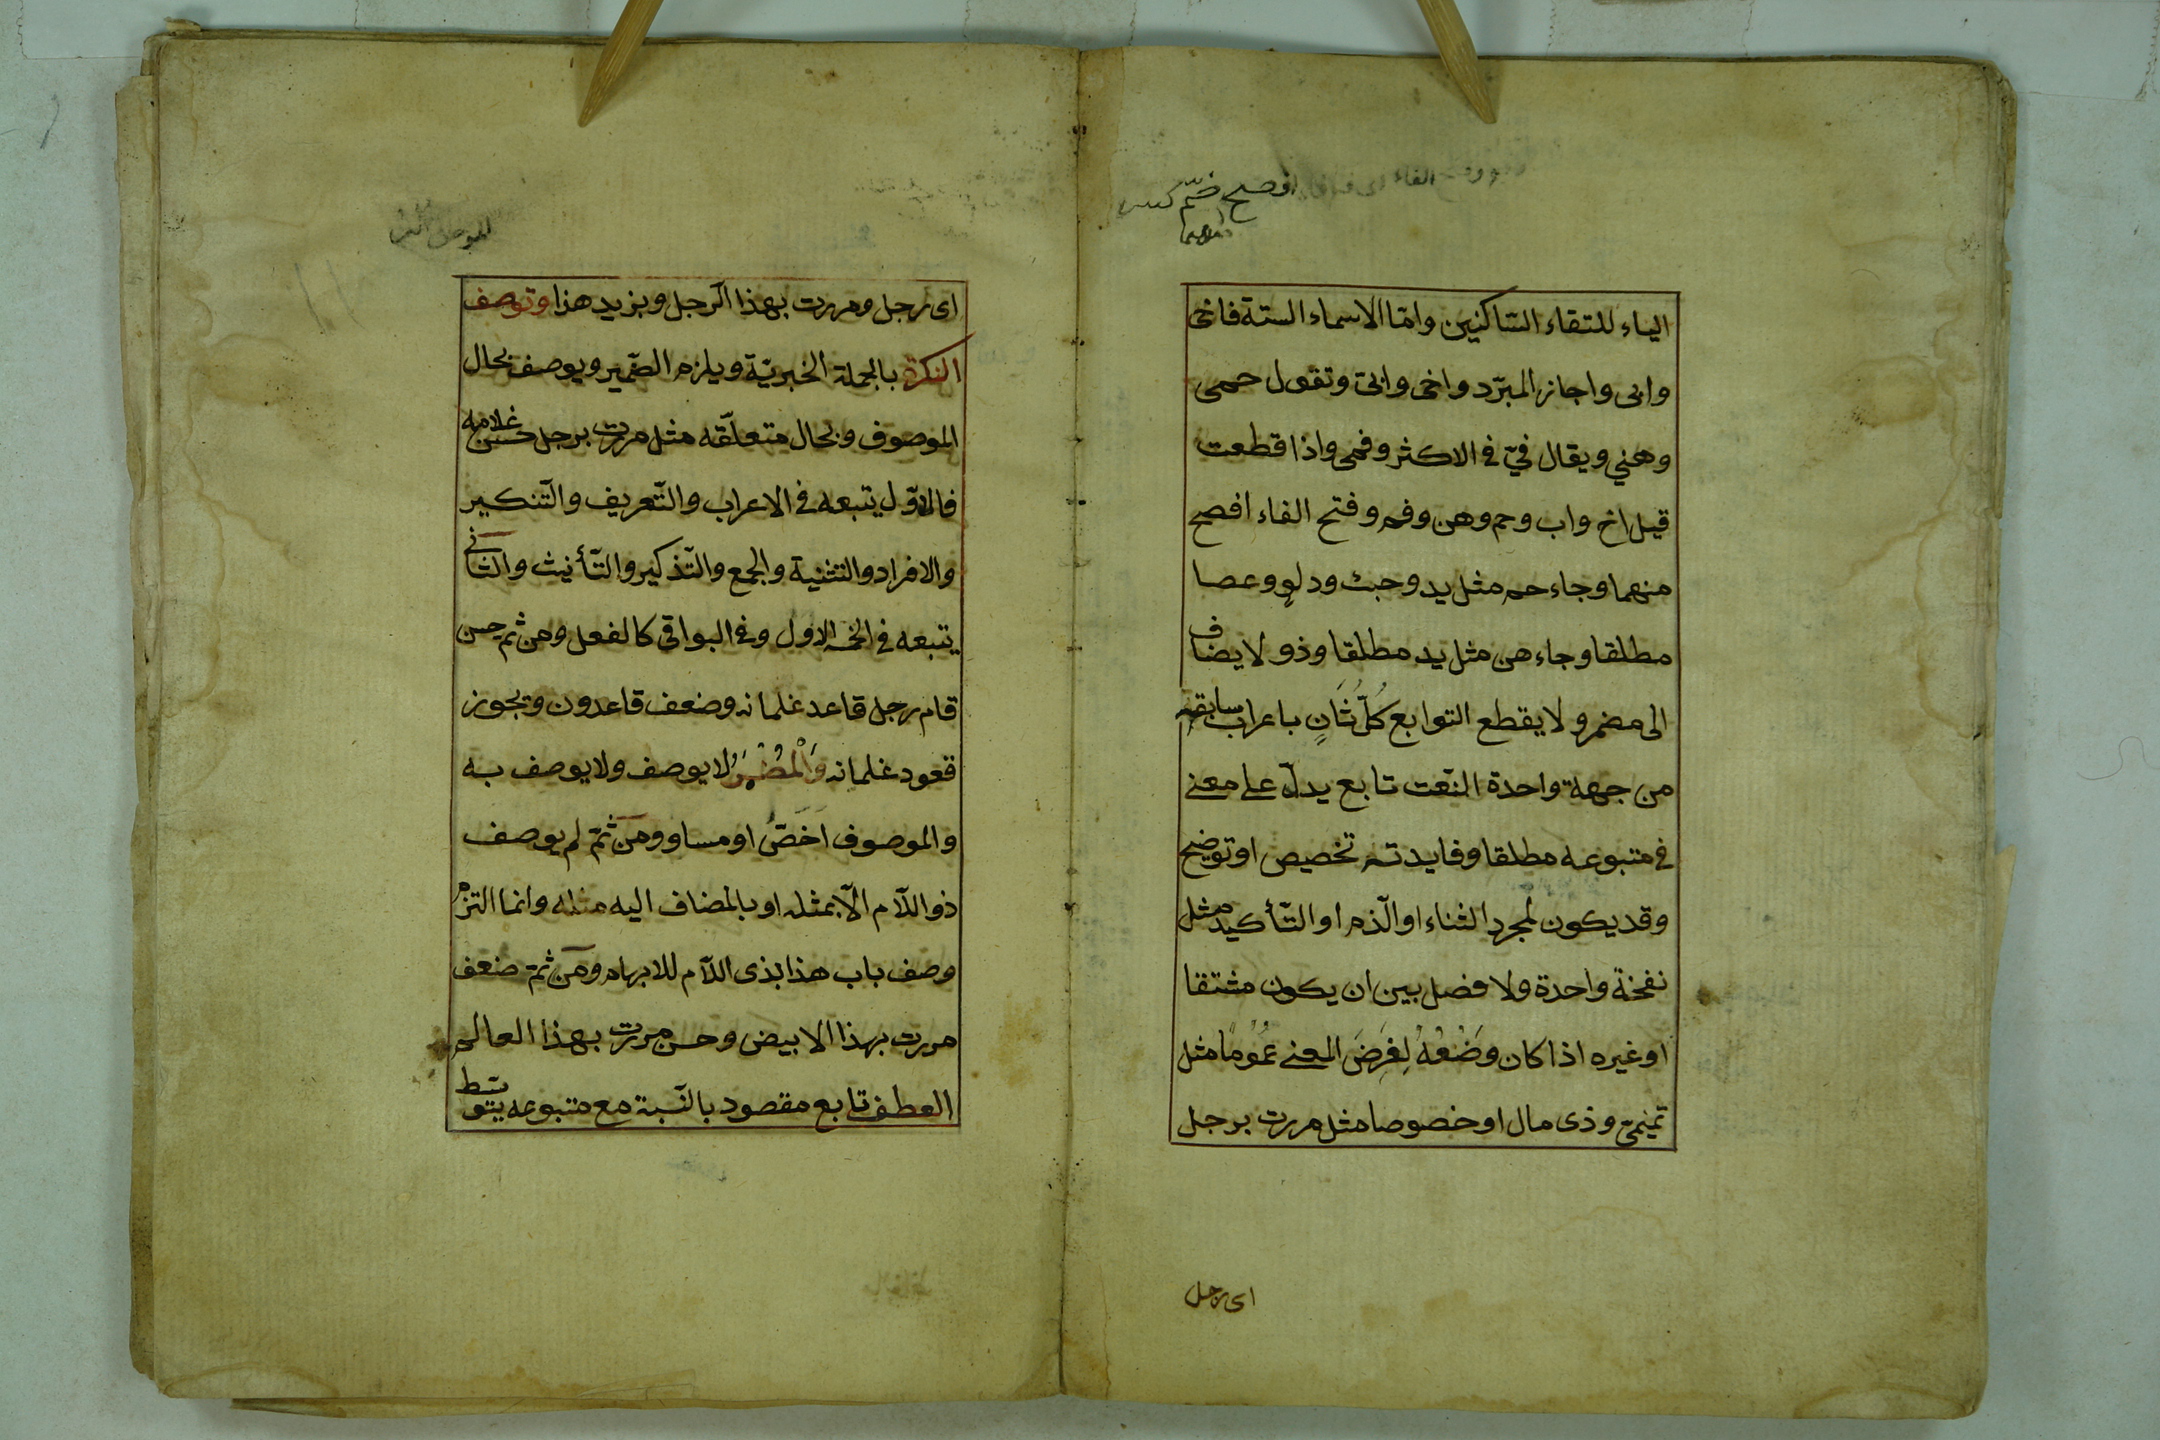 افصح ضم كسر
الياء للتقاء الساكنين وامّا الاسماء الستة فاخى
وابى واجاز المبرّد واخىّ وابىّ وتقول حمى
وهني ويقال فيّ فى الاكثر وفمى واذا قطعت
قيل اخ واب وحم وهن وفم وفتح الفاء افصح
منهما وجاء حم مثل يد وخبء ودلو وعصا
مطلقا وجاء هن مثل يد مطلقا وذو لا يضاف
الى مضمر ولا يقطع التوابع كُلّ ثَانٍ باعراب سابقه
من جهة واحدة النّعت تابع يدلّ على معنى
فى متبوعه مطلقا وفايدته تخصيص او توضيح
وقد يكون لمجرد الثناء او الّذم او التّأكيد مثل
نفخة واحدة ولا فصل بين ان يكون مشتقا
او غيره اذا كان وَضْعُهُ لِغَرَضِ المعنى عُمُومًا مثل
تميمىّ وذى مال او خصوصا مثل مررت برجل
اى رجل
اى رجل ومررت بهذا الرّجل وبزيد هذا وتوصف
النكرة بالجملة الخبريّة ويلزم الضّمير ويوصف بحال
الموصوف وبحال متعلّقه مثل مررت برجل حسن غلامه
فالاوّل يتبعه فى الاعراب والتّعريف والتّنكير
والافراد والتثنية والجمع والتّذكير والتّأنيث والثّانى
يتبعه فى الخمسة الاول وفى البواقى كالفعل ومن ثم حسن
قام رجل قاعد غلمانه وضعف قاعدون ويجوز
قعود غلمانه وَالْمُضْمَرُ لا يوصف ولا يوصف به
والموصوف اَخَصُّ او مساو ومن ثمّ لم يوصف
ذو اللّام الّا بمثله او بالمضاف اليه مثله وانما التزم
وصف باب هذا بذى اللّام للابهام ومن ثمّ ضعف
مررت بهذا الابيض وحسن مررت بهذا العالم
العطف تابع مقصود بالنّسبة مع متبوعه يتوسّط